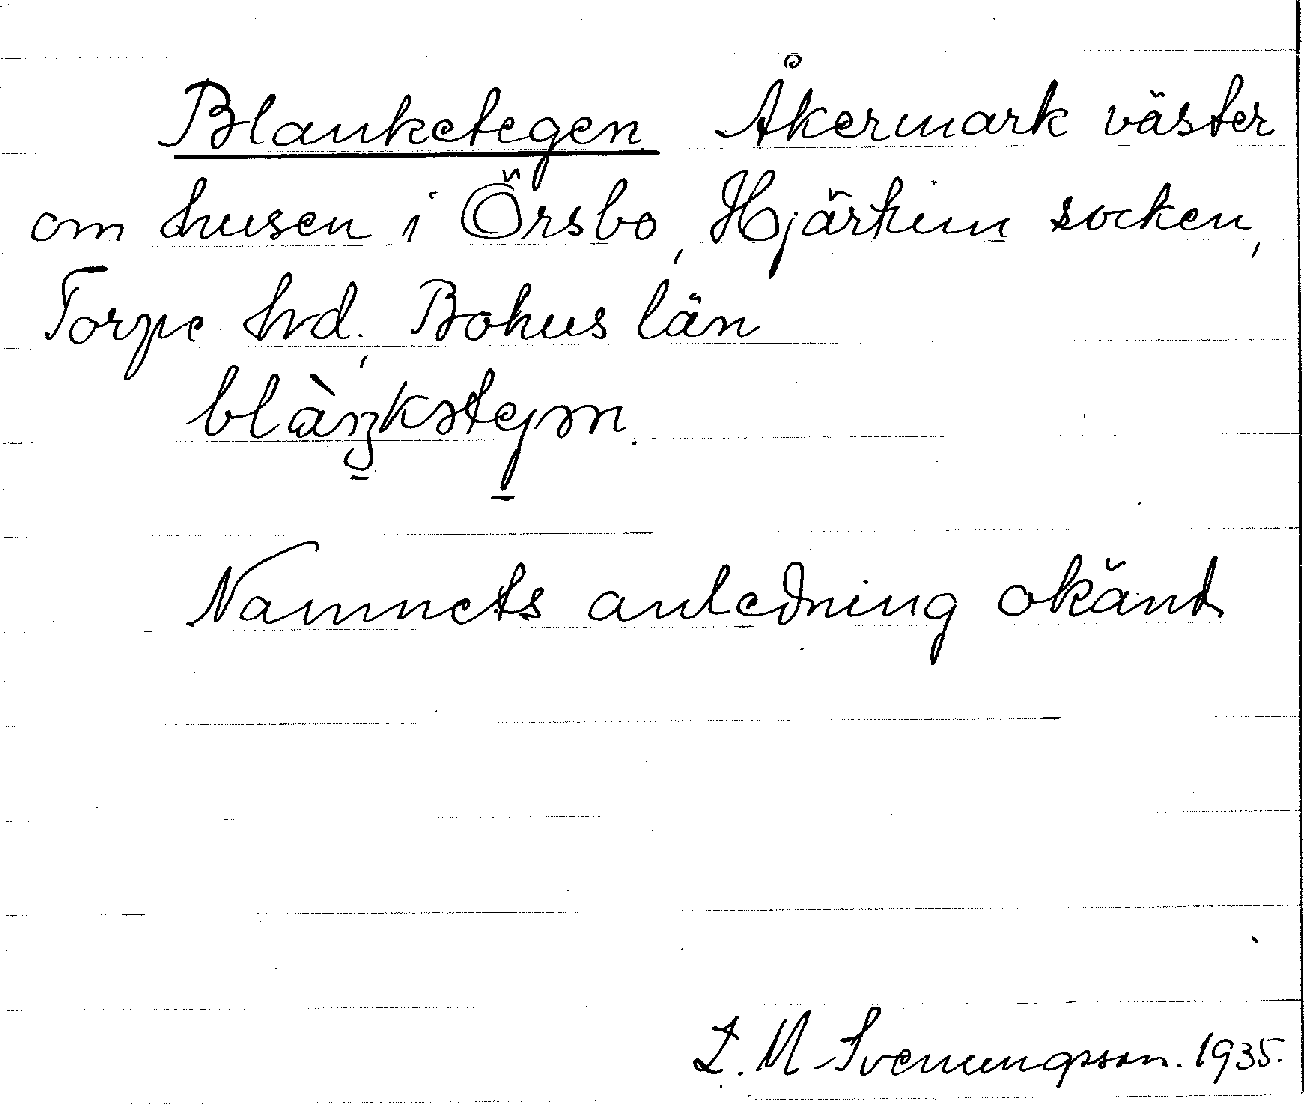 Blanketegen Åkermark väster
om husen i Örsbo, Hjärtum socken,
Torpe hrd, Bohus län
blàŋkətejən.
Namnets anledning okänt
L. M Svenungsson. 1935.